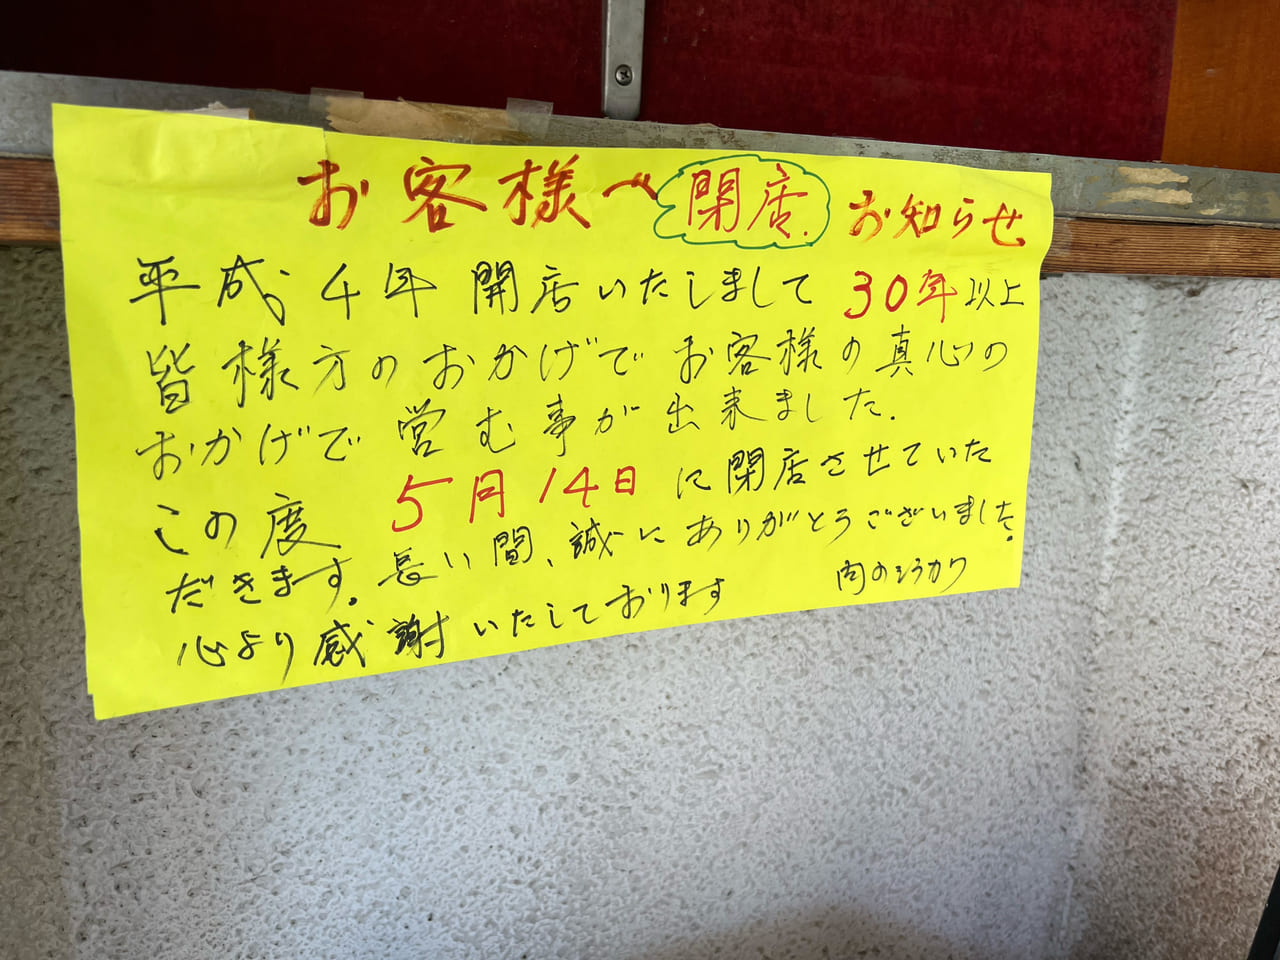 お客様へ 閉店. お知らせ
平成4年 開店いたしまして 30年以上
皆様方のおかげでお客様の真心の
おかげで営む事が出来ました.
この度 5月14日に閉店させていた
だきます。長い間、誠にありがとうございました。
心より感謝いたしております 肉のシラカワ